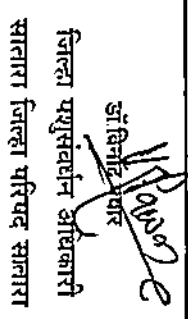 डॉ.विनोद पवार
जिल्हा पशुसंवर्धन अधिकारी
सातारा जिल्हा परिषद सातारा